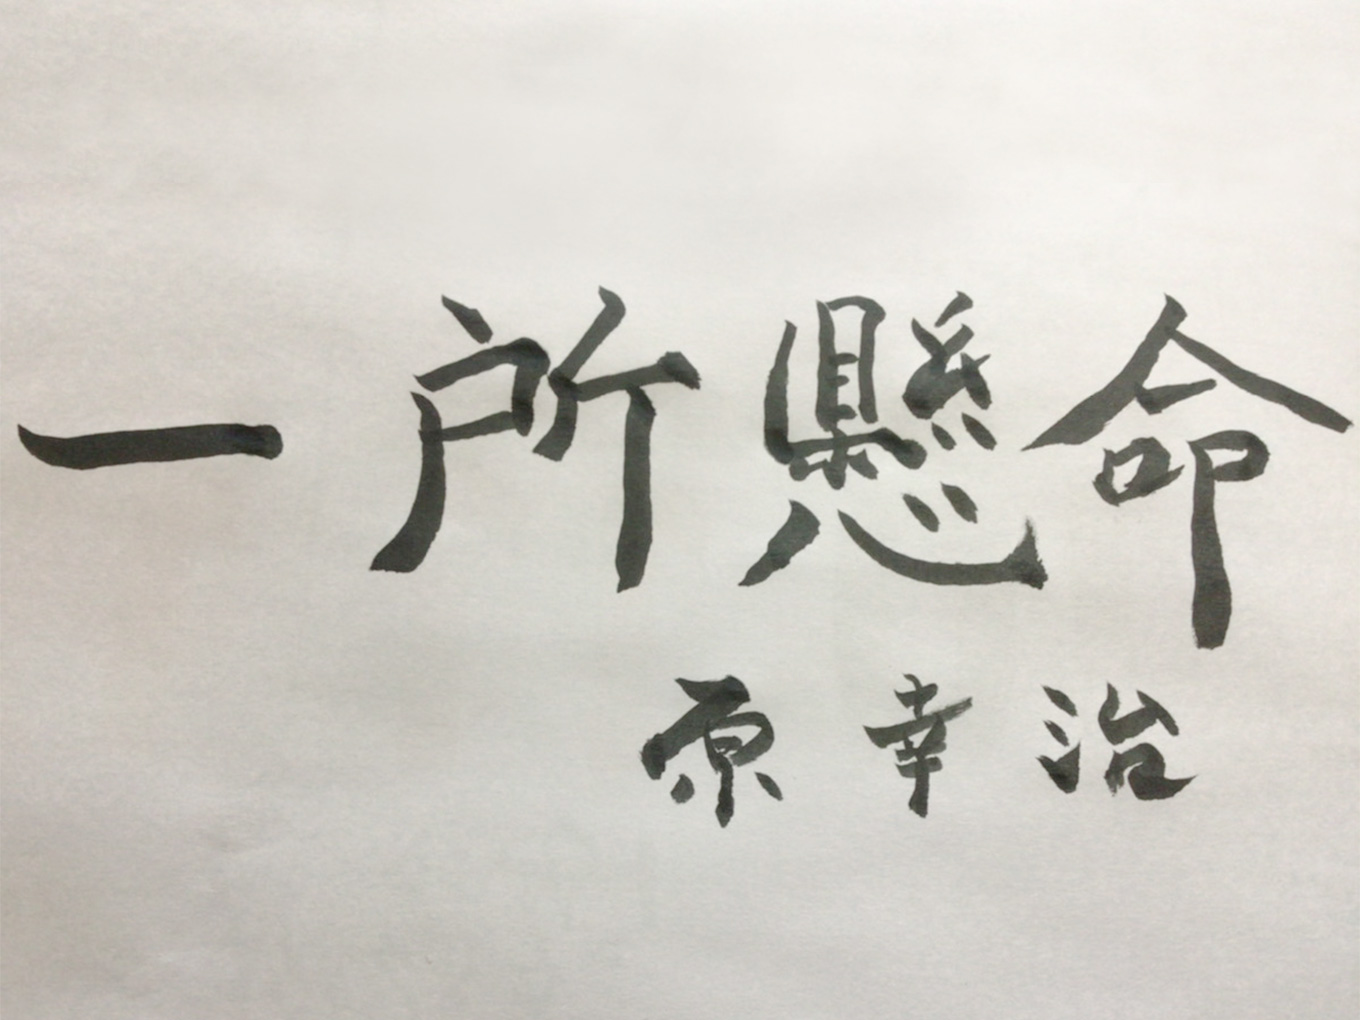 一所懸命
原幸治